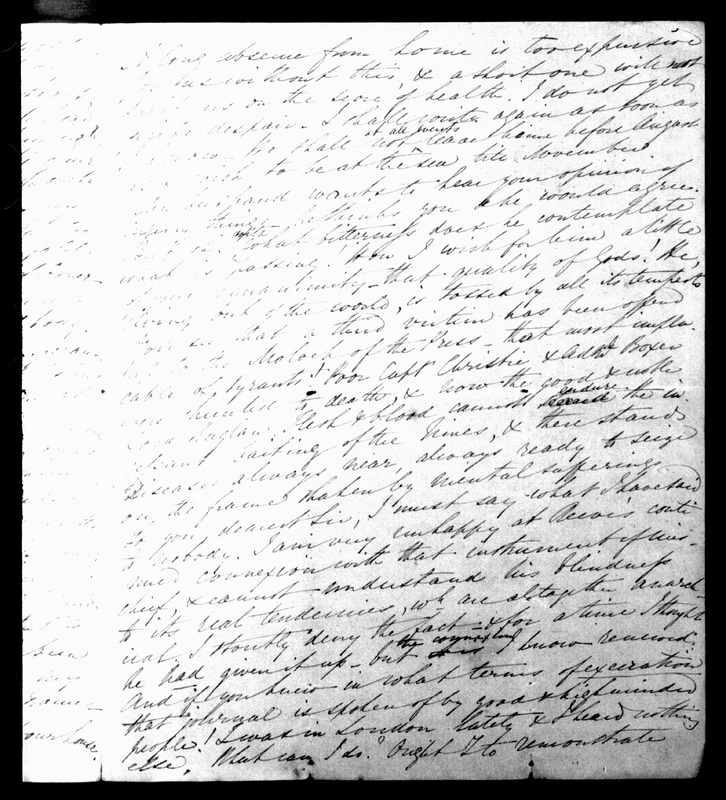 A long absence from home is too expensive
for us without this, & a short one will not
on the score of health I do not yet
despair. I shall write again as soon as
I know. We shall not at all events leave home before August
wish to be at the sea till November.
My husband wants to hear your opinion of
every thing he thinks you & he would agree.
with what bitterness does he contemplate
what is passing! How I wish for him a little
more equanimity - that quality of Gods! He,
living out of the world, is tossed by all its tempests
You see that a third victim has been offered
to the Moloch of the Press - that most impla-
cable of tyrants! Poor Capt Christie & Adml Boxer
were hunted to death, & now the good & noble
Lord Raglan. Flesh & blood cannot endure the in-
cessant baiting of the Times, & there stands
Disease always near, always ready to seize
on the frame shaken by mental suffering.
To you dearest Sir, I must say what I have said
to nobody. I am very unhappy at Reeves conti
nued connexion with that instrument of mis-
chief, & cannot understand his blindness
to its real tendencies, wh are altogether anarch
ical. I stoutly deny the fact - & for a time I thought
he had given it up - but the connexion I know renewed
And if you knew in what terms of execration
that journal is spoken of by good & highminded
people! I was in London lately & I heard nothing
else. What can I do? Ought I to remonstrate
been
my
our house.